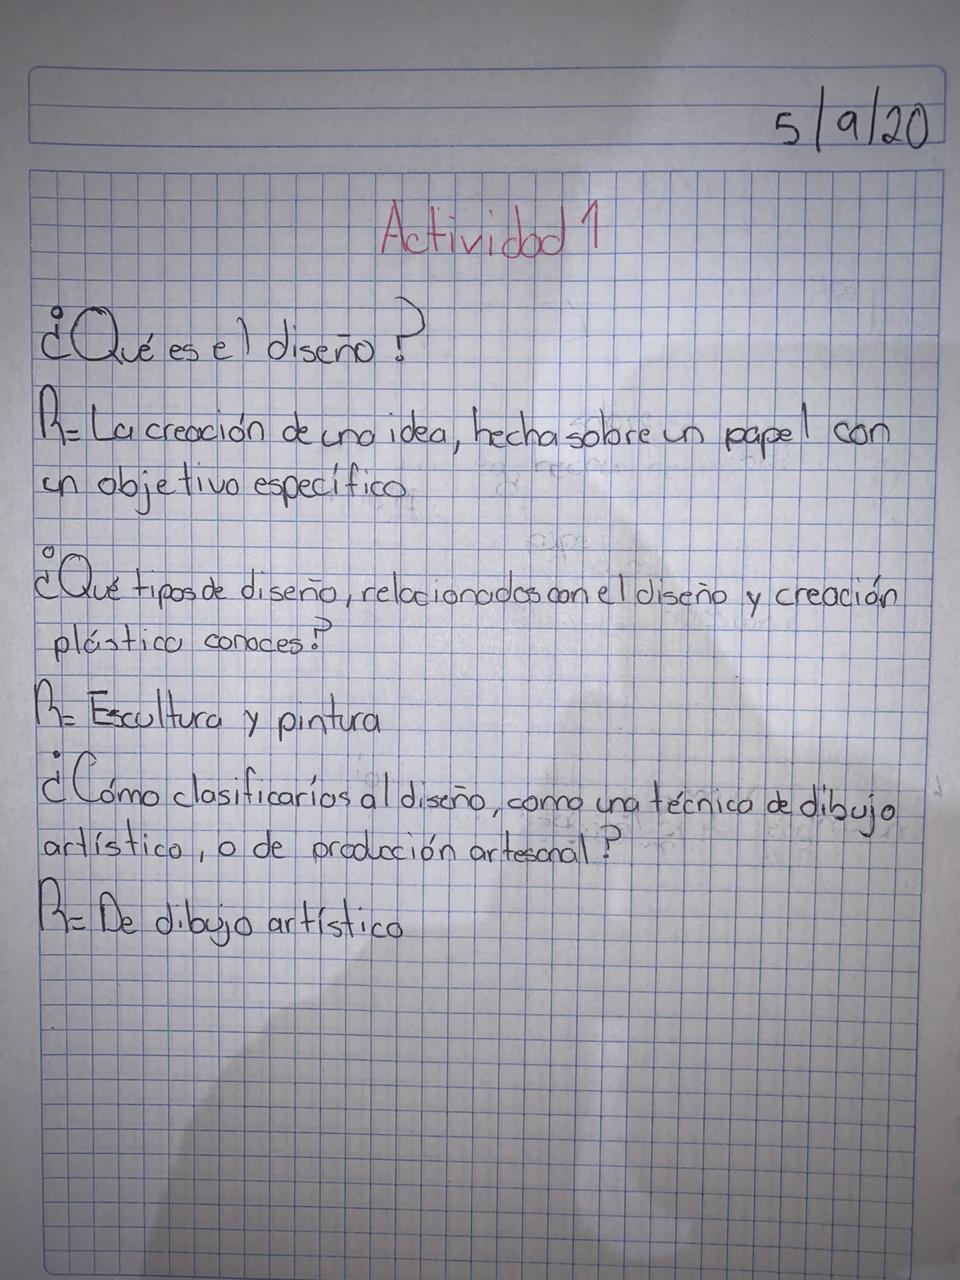 5/9/20
Actividad 1
¿Qué es el diseño?
R= La creación de una idea, hecha sobre un papel con
un objetivo específico
¿Qué tipos de diseño, relacionados con el diseño y creación
plástica conoces?
R= Escultura y pintura
¿Cómo clasificarías al diseño, como una técnica de dibujo
artístico, o de producción artesanal?
R= De dibujo artístico